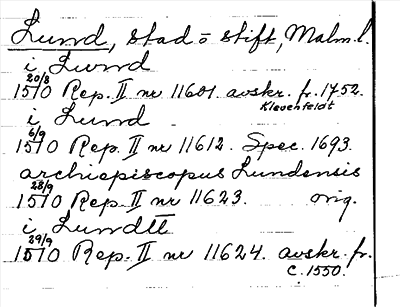 Lund, stad o stift, Malm.l.
i Lund
20/8
1510 Rep. II nr 11601. avskr. fr. 1752.
Klevenfeldt
i Lund
6/9
1510 Rep. II nr 11612. Spec. 1693.
archiepiscopus Lundensis
28/9
1510 Rep. II nr 11623. orig.
i Lundtt
29/9
1510 Rep. II nr 11624. avskr. fr.
c. 1550.